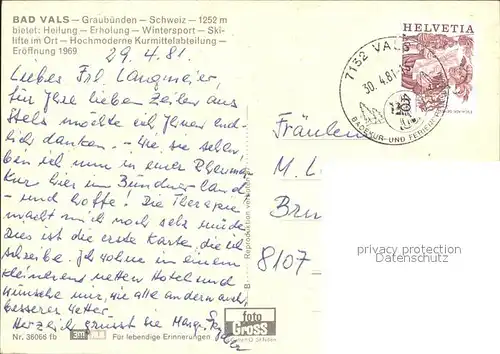 BAD VALS — Graubünden — Schweiz — 1252 m
bietet: Heilung — Erholung — Wintersport — Ski-
lifte im Ort — Hochmoderne Kurmittelabteilung —
Eröffnung 1969
29.4.81.
Liebes Frl. Langmeier,
für Ihre lieben Zeilen aus
möchte ich Ihnen end-
lich danken. – Wie sie sehen,
bin ich nun in einer Rheuma-
Kur hier im Bündnerland
– und hoffe! Die Therapie
macht mich noch sehr müde
Dies ist die erste Karte, die ich
schreibe. Ich wohne in einem
netten Hotel und
wünsche mir, wie alle andern auch,
besseres Wetter.
Herzlich grüsst sie
Nr. 36066 fb
Für lebendige Erinnerungen
foto
Gross
Reproduktion verboten
B
HELVETIA
7132 VALS
30.4.81
BADEKUR- UND FERIENORT
Fräulein
M. L
Bru
8107
privacy protection
Datenschutz